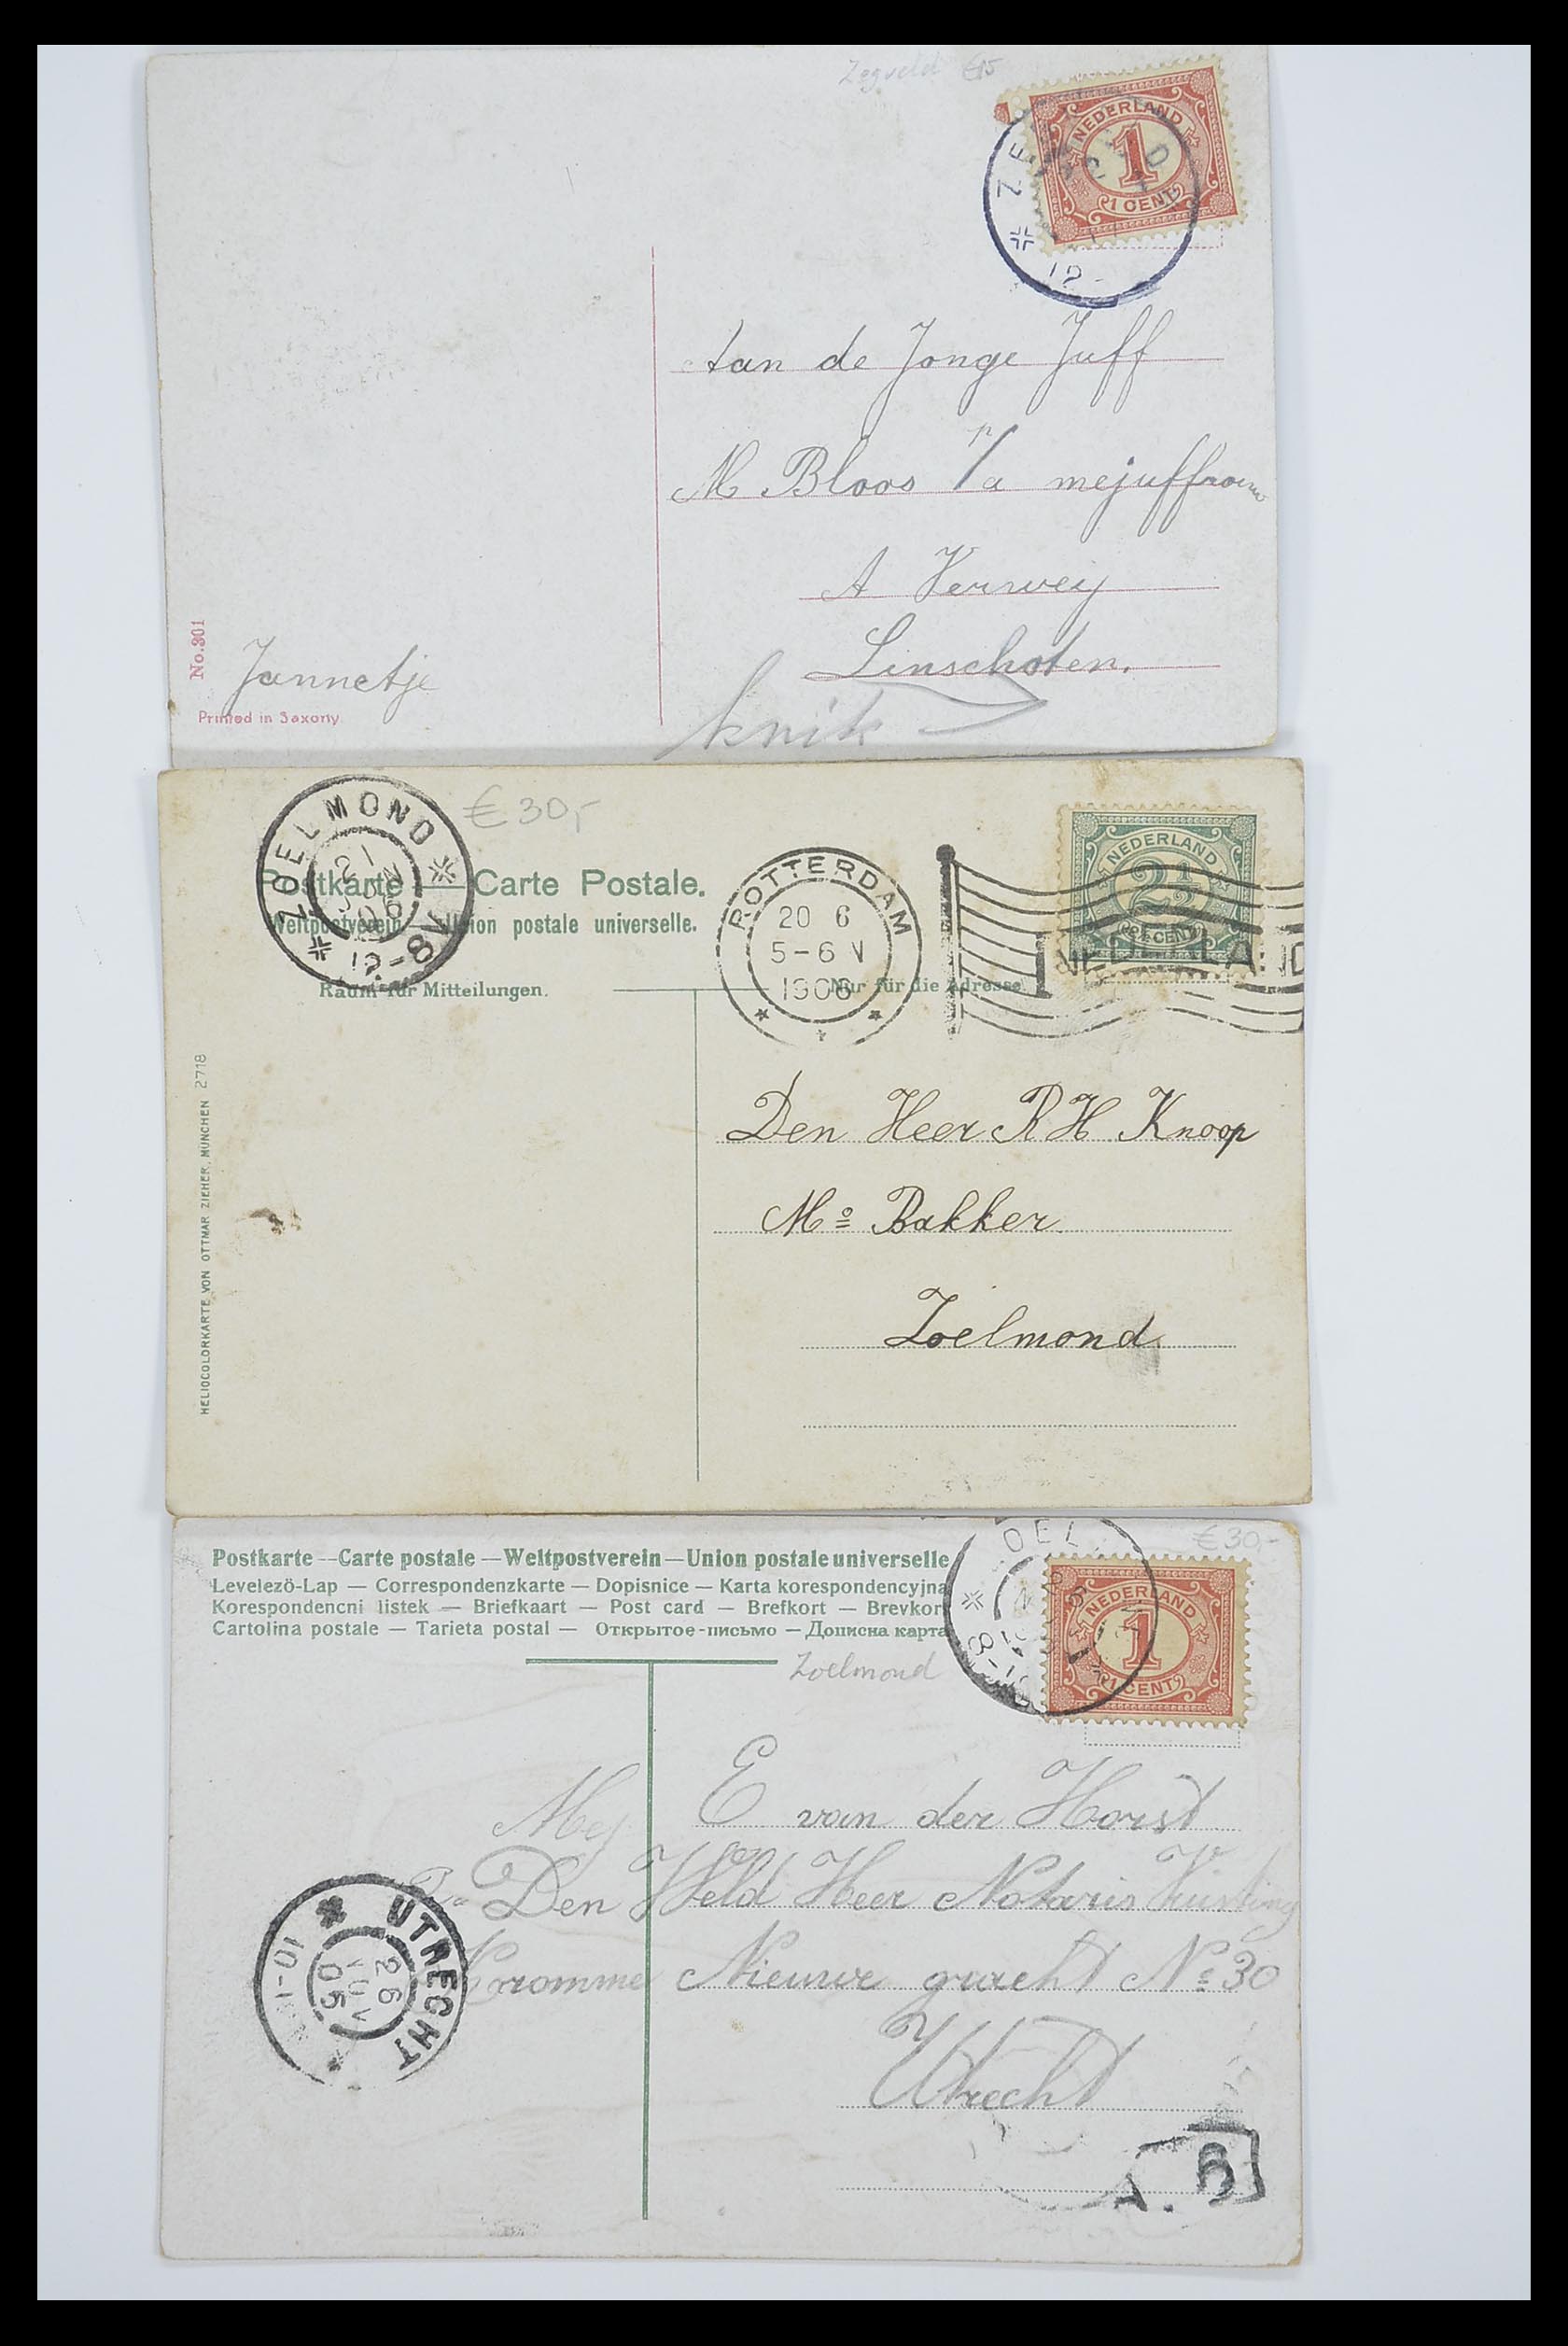 Zegveld €15
NEDERLAND
1
1 CENT
12-
Aan de Jonge Juff
M Bloos p/a mejuffrouw
A Verwey
Linschoten.
Jannetje
knik
No.301
Printed in Saxony
ZOELMOND
21
JUN
06
12-8V
€30,-
Postkarte — Carte Postale.
Weltpostverein — Union postale universelle.
Raum für Mitteilungen.
Nur für die Adresse.
ROTTERDAM
20 6
5-6 V
1906
NEDERLAND
2½
2½ CENT
NEDERLAND
HELIOCOLORKARTE VON OTTMAR ZIEHER, MÜNCHEN 2718
Den Heer R H Knoop
Mo Bakker
Zoelmond
€30,-
Postkarte — Carte postale — Weltpostverein — Union postale universelle
Levelező-Lap — Correspondenzkarte — Dopisnice — Karta korespondencyjna
Korespondencni listek — Briefkaart — Post card — Brefkort — Brevkort
Cartolina postale — Tarieta postal — Открытое-письмо — Дописна карта
Zoelmond
OEL
NEDERLAND
1
1 CENT
Mej E van der Horst
Den Weld Heer Notaris
Kromme Nieuwe gracht No 30
Utrecht
UTRECHT
26
NOV
05
10-
A. 6